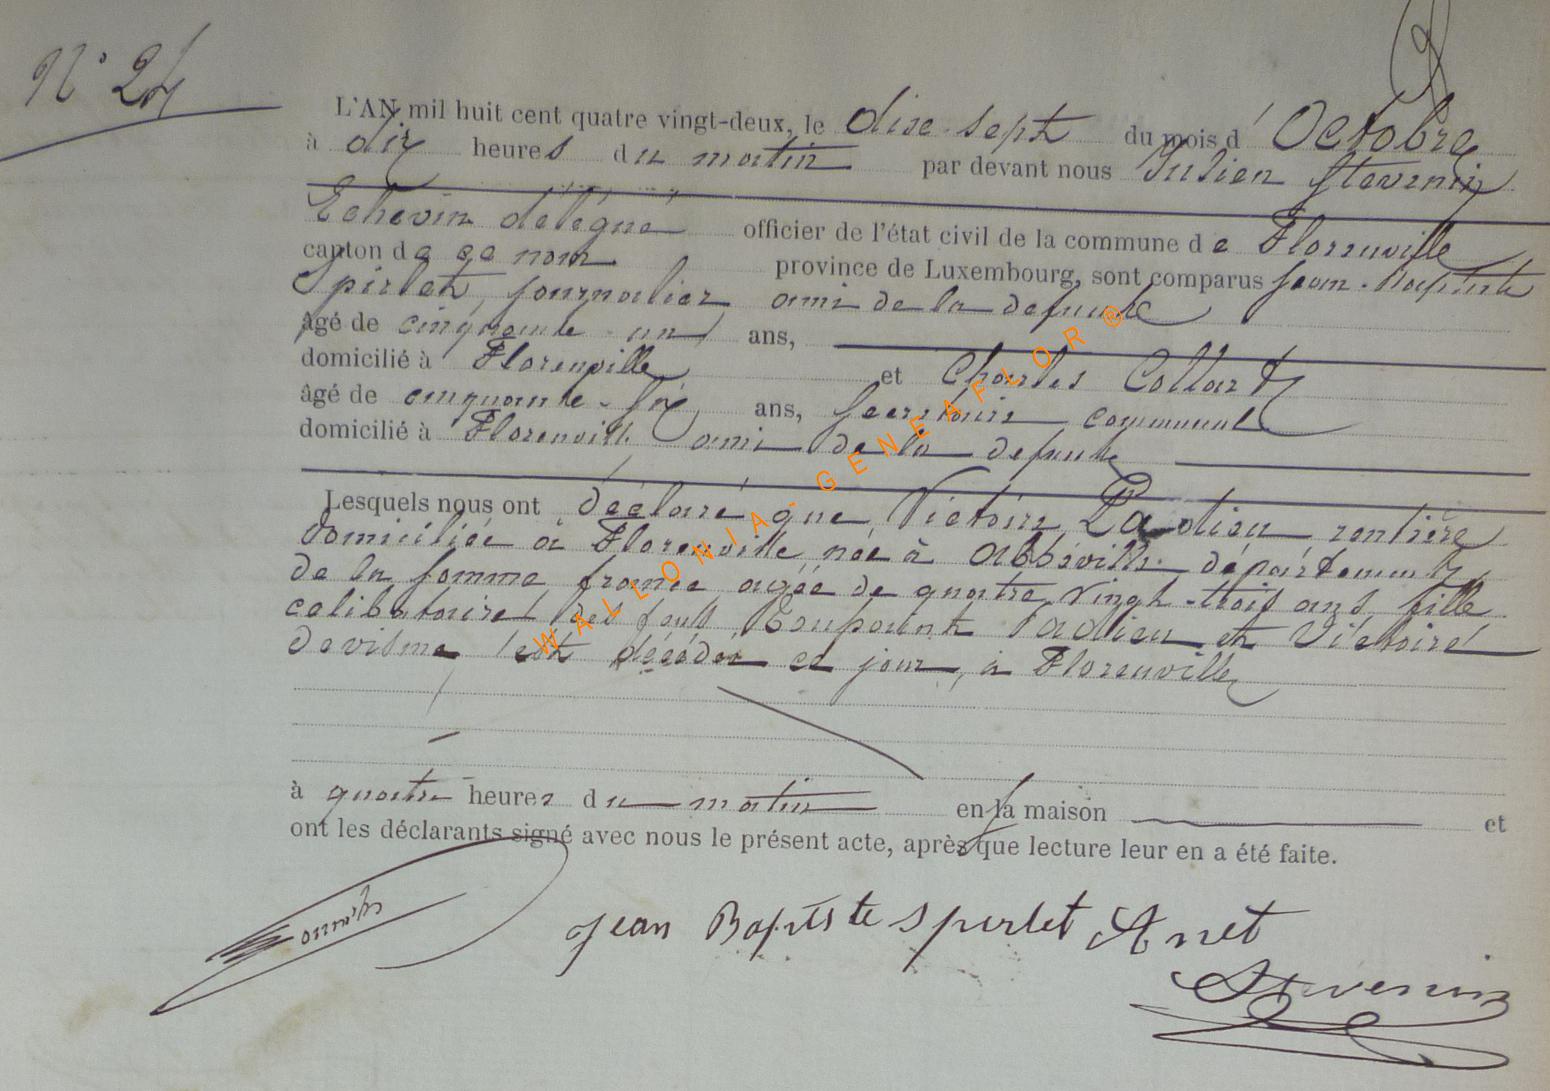 N° 24
L'AN mil huit cent quatre vingt-deux, le dixe-sept du mois d'Octobre
à dix heures du matin par devant nous Julien Stevenin
Echevin délégué officier de l'état civil de la commune de Florenville
canton de ce nom province de Luxembourg, sont comparus Jean-Baptiste
Spirlet, journalier ami de la defunte
âgé de cinquante-un ans,
domicilié à Florenville et Charles Collart
âgé de cinquante-six ans, Secretaire communal
domicilié à Florenville ami de la defunte
Lesquels nous ont déclaré que Victoire Padieu rentière
domiciliée à Florenville née à Abbéville département
de la Somme france agée de quatre vingt-trois ans, fille
celibataire des Padieu et Victoire
devisme est décédée ce jour, à Florenville
à quatre heures du matin en sa maison et
ont les déclarants signé avec nous le présent acte, après que lecture leur en a été faite.
Jean Baptiste Spirlet
Stevenin
WALLONIA-GENEAFLOR®